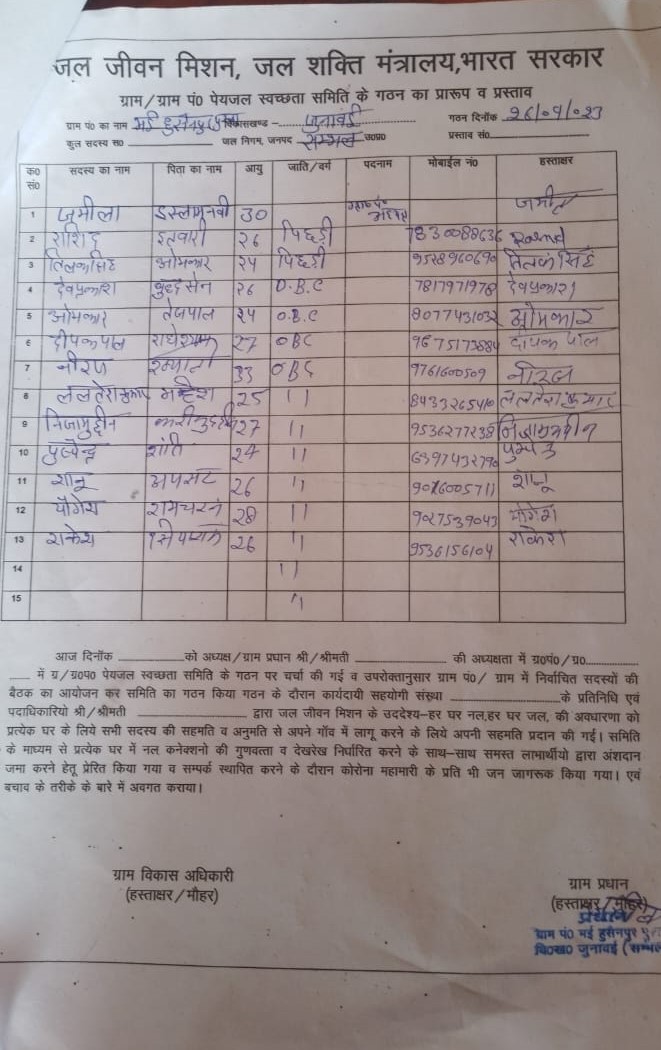 जल जीवन मिशन, जल शक्ति मंत्रालय,भारत सरकार
ग्राम/ग्राम पं० पेयजल स्वच्छता समिति के गठन का प्रारूप व प्रस्ताव
ग्राम पं० का नाम भई हुसैनपुर विकासखण्ड - जुनावई गठन दिनॉंक 26/09/023
कुल सदस्य स० जल निगम, जनपद सम्भल उ०प्र० प्रस्ताव सं०
क० सं० सदस्य का नाम पिता का नाम आयु जाति/वर्ग पदनाम मोबाईल नं० हस्ताक्षर
1 जमीला इस्लामनवी 30
2 राशिद इतवारी २6 पिछड़ी 7830088636 Rashid
3 तिलकसिंह ओमकार २५ पिछड़ी 9528960690 तिलक सिंह
4 देवप्रकाश बुद्दसेन २6 O.B.C 7817971978 देवप्रकाश
5 ओमकार तेजपाल ३५ O.B.C 8077431032 ओमकार
6 दीपक पाल राधेश्याम 27 OBC 9675173884 दीपक पाल
7 नीरज 33 OBC 9761600509 नीरज
8 महेश 25 11 8433265410
9 निजामुद्दीन 27 11 9536277238 निजामुद्दीन
10 शांति २4 11 6397432790
11 शानू अफसर 26 11 9026005711 शानू
12 योगेश रामचरन २8 11 9027539043 योगेश
13 राकेश 26 11 9536156104 राकेश
14 11
15 11
आज दिनॉंक को अध्यक्ष/ग्राम प्रधान श्री/श्रीमती की अध्यक्षता में ग्र०पं०/ग्र०
में ग्र/ग्र०प० पेयजल स्वच्छता समिति के गठन पर चर्चा की गई व उपरोक्तानुसार ग्राम पं०/ ग्राम में निर्वाचित सदस्यों की
बैठक का आयोजन कर समिति का गठन किया गठन के दौरान कार्यदायी सहयोगी संख्या के प्रतिनिधि एवं
पदाधिकारियो श्री/श्रीमती द्वारा जल जीवन मिशन के उददेश्य-हर घर नल,हर घर जल, की अवधारणा को
प्रत्येक घर के लिये सभी सदस्य की सहमति व अनुमति से अपने गॉंव में लागू करने के लिये अपनी सहमति प्रदान की गई। समिति
के माध्यम से प्रत्येक घर में नल कनेक्शनो की गुणवत्ता व देखरेख निर्धारित करने के साथ-साथ समस्त लाभार्थीयो द्वारा अंशदान
जमा करने हेतू प्रेरित किया गया व सम्पर्क स्थापित करने के दौरान कोरोना महामारी के प्रति भी जन जागरूक किया गया। एवं
बचाव के तरीके के बारे में अवगत कराया।
ग्राम विकास अधिकारी
(हस्ताक्षर/मौहर)
ग्राम प्रधान
(हस्ताक्षर/मौहर)
प्रधान
ग्राम पं० भई हुसैनपुर
वि०ख० जुनावई (सम्भल